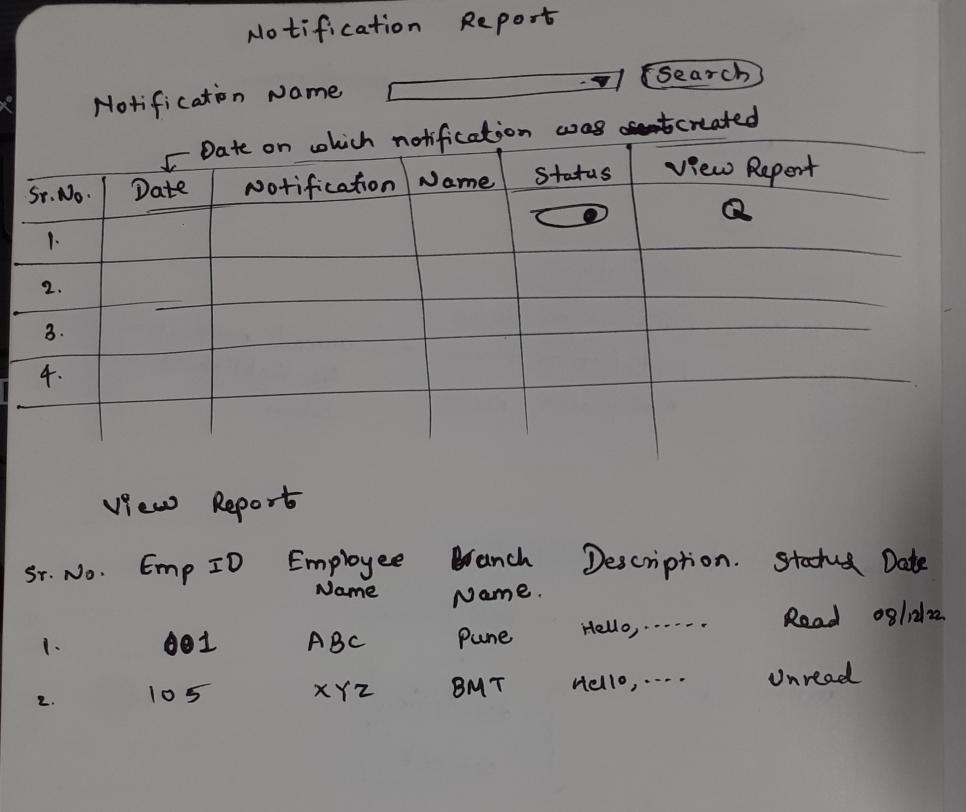 Notification Report
Notification Name Search
Date on which notification was created
Sr.No. Date Notification Name Status View Report
1.
2.
3.
4.
View Report
Sr. No. Emp ID Employee Name Branch Name. Description. Status Date
1. 001 ABC Pune Hello,...... Read 08/12/22
2. 105 XYZ BMT Hello,.... Unread